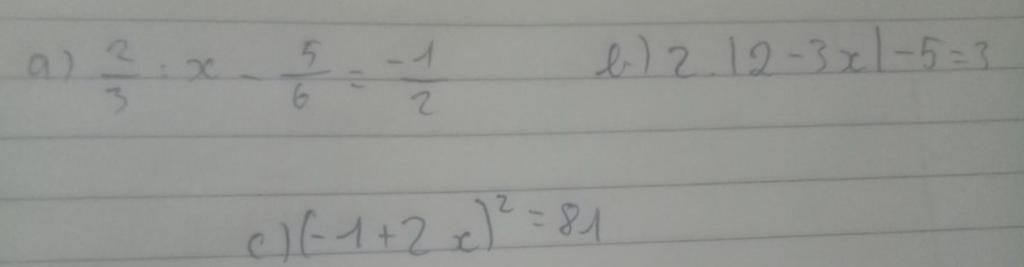 a) 2/3 : x - 5/6 = -1/2 b) 2.|2-3x|-5=3
c) (-1+2x)² = 81